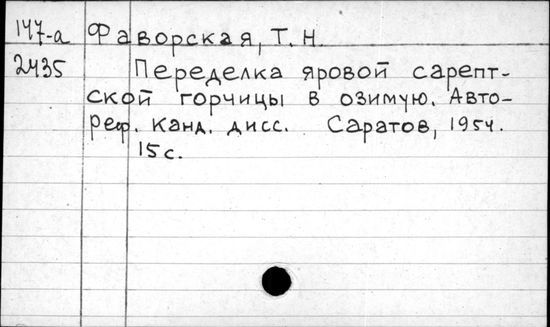 147-а Фаворская, Т. Н.
2435 Переделка яровой сарепт-
ской горчицы в озимую. Авто-
реф. канд. дисс. Саратов, 1954.
15 с.